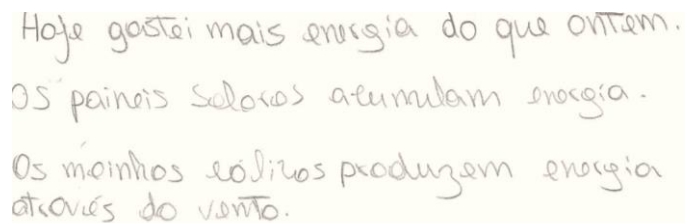 Hoje gastei mais energia do que ontem.
Os paineis solares acumulam energia.
Os moinhos eólicos produzem energia
através do vento.